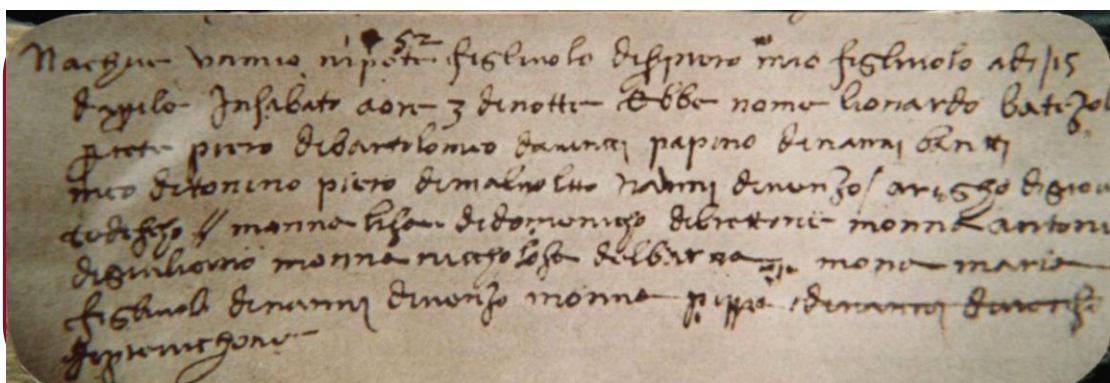 52
Nacque un mio nipote figliuolo di s piero mio figliuolo a di 15
d aprile in sabato a ore 3 di notte ebbe nome lionardo batezol
prete piero di bartolomeo da vinci papino di nanni banti
meo di tonino piero di malvolto nanni di venzo arigho di giova
tedescho monna lisa di domenicho di brettone monna antoni
di giuliano monna niccholosa del barna mona maria
figliuola di nanni di venzo monna pippa
di previchone